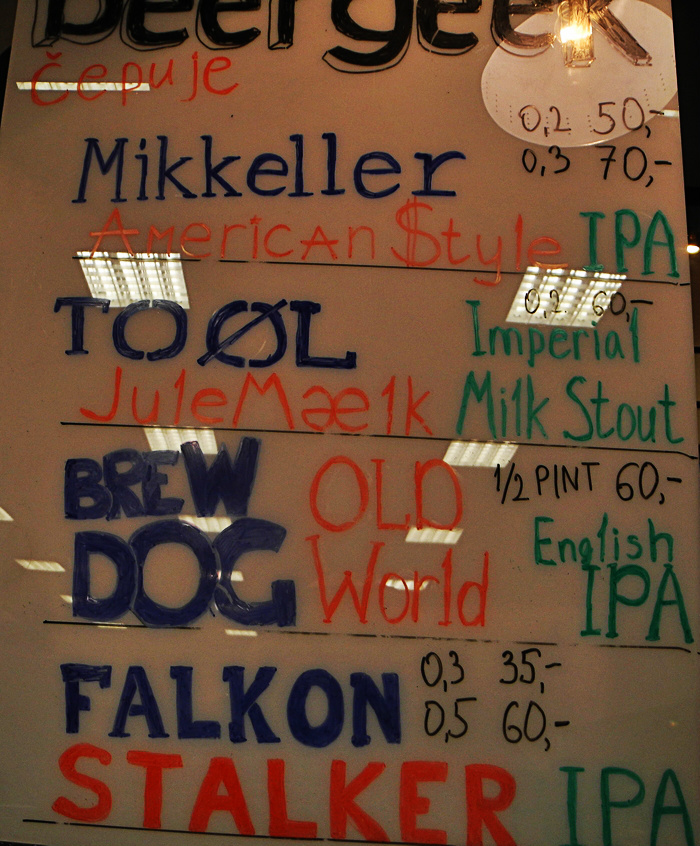 beergeek
čepuje
0,2 50,-
Mikkeller 0,3 70,-
American $tyle IPA
TO ØL 0,2 60,-
Imperial
JuleMælk Milk Stout
BREW OLD 1/2 PINT 60,-
DOG World English
IPA
FALKON 0,3 35,-
0,5 60,-
STALKER IPA